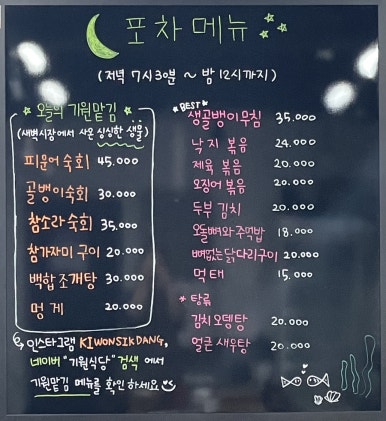 포차 메뉴
(저녁 7시30분 ~ 밤 12시까지)
오늘의 기원맡김
(새벽시장에서 사온 싱싱한 생물)
피문어숙회 45.000
골뱅이숙회 30.000
참소라숙회 35.000
참가자미 구이 20.000
백합조개탕 30.000
멍게 20.000
인스타그램 KIWONSIKDANG,
네이버 "기원식당" 검색 에서
기원맡김 메뉴를 확인하세요
*BEST*
생골뱅이무침 35.000
낙지 볶음 24.000
제육 볶음 20.000
오징어 볶음 20.000
두부 김치 20.000
오돌뼈와 주먹밥 18.000
뼈없는 닭다리구이 20.000
먹태 15.000
* 탕류
김치오뎅탕 20.000
얼큰 새우탕 20.000